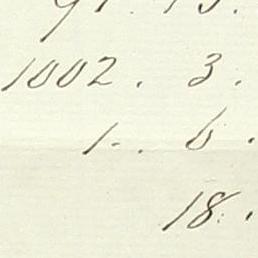 1002. 3.
1.. 6.
18.